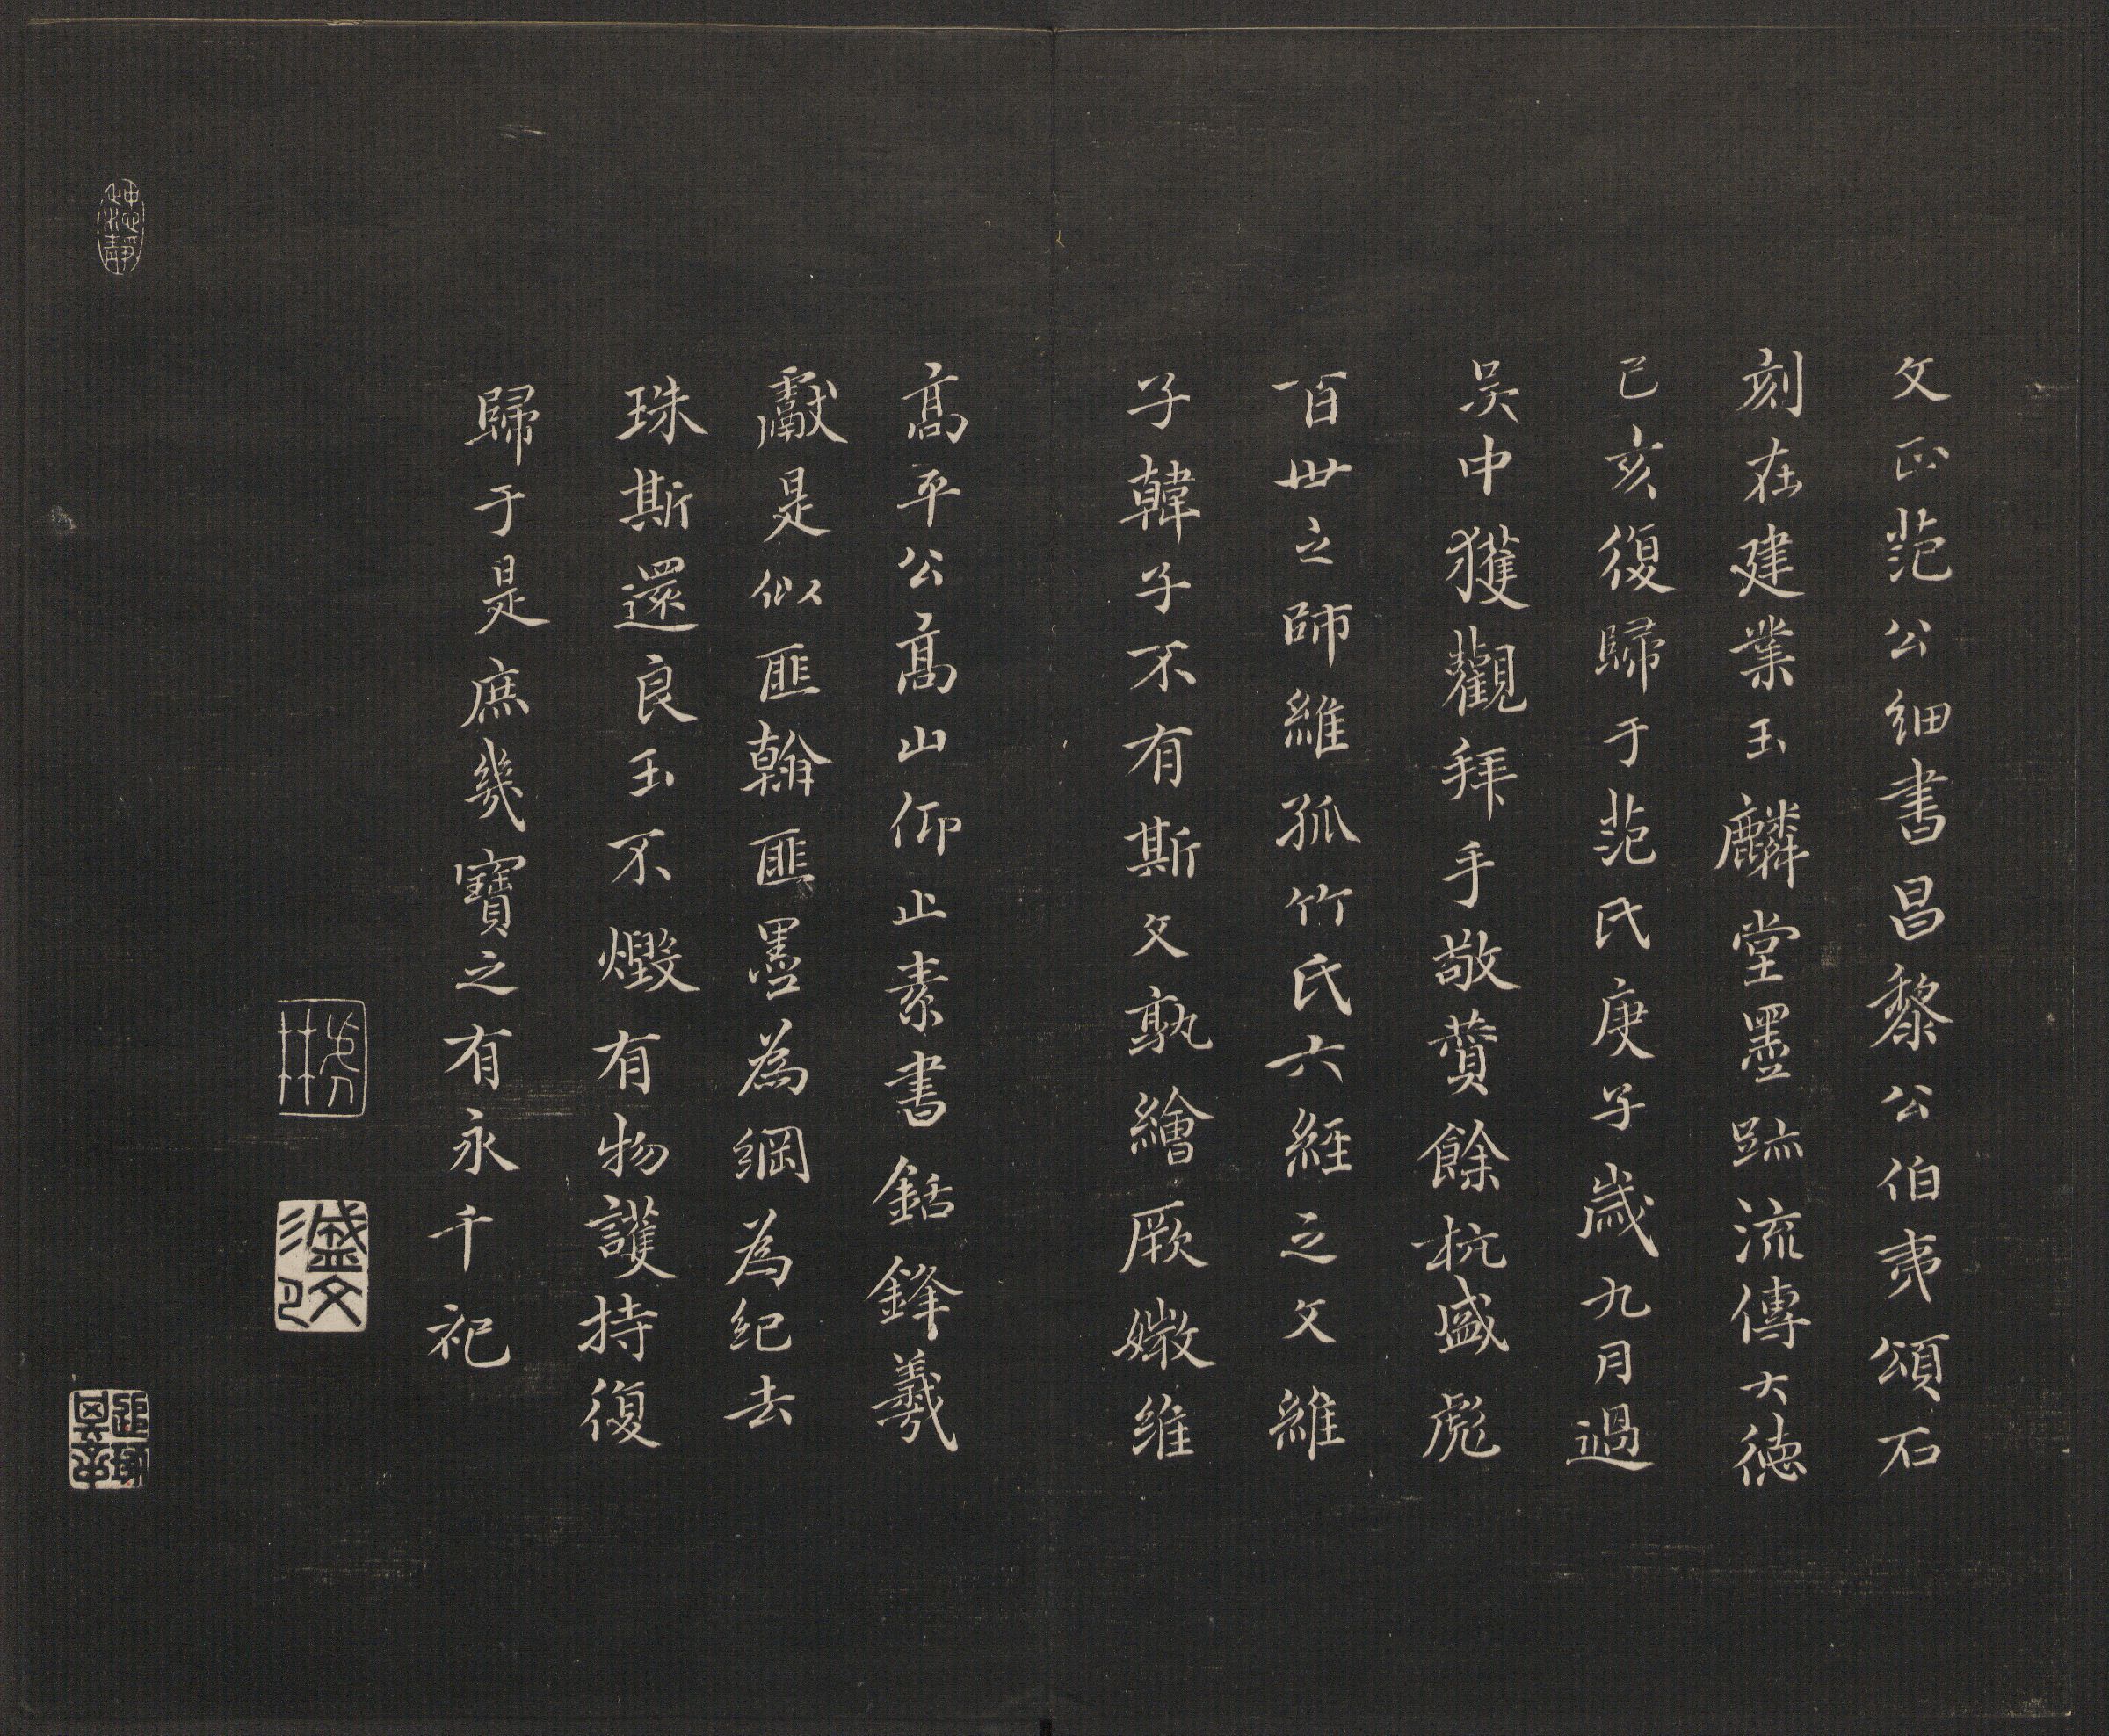 文正范公細書昌黎公伯夷頌石
刻在建業玉麟堂墨跡流傳大德
己亥復歸于范氏庚子歲九月過
吳中獲觀拜手敬賛餘杭盛彪
百世之師維孤竹氏六經之文維
子韓子不有斯文孰繪厥媺維
高平公高山仰止素書銛鋒羲
獻是似匪翰匪墨為綱為紀去
珠斯還良玉不燬有物護持復
歸于是庶幾寶之有永千祀